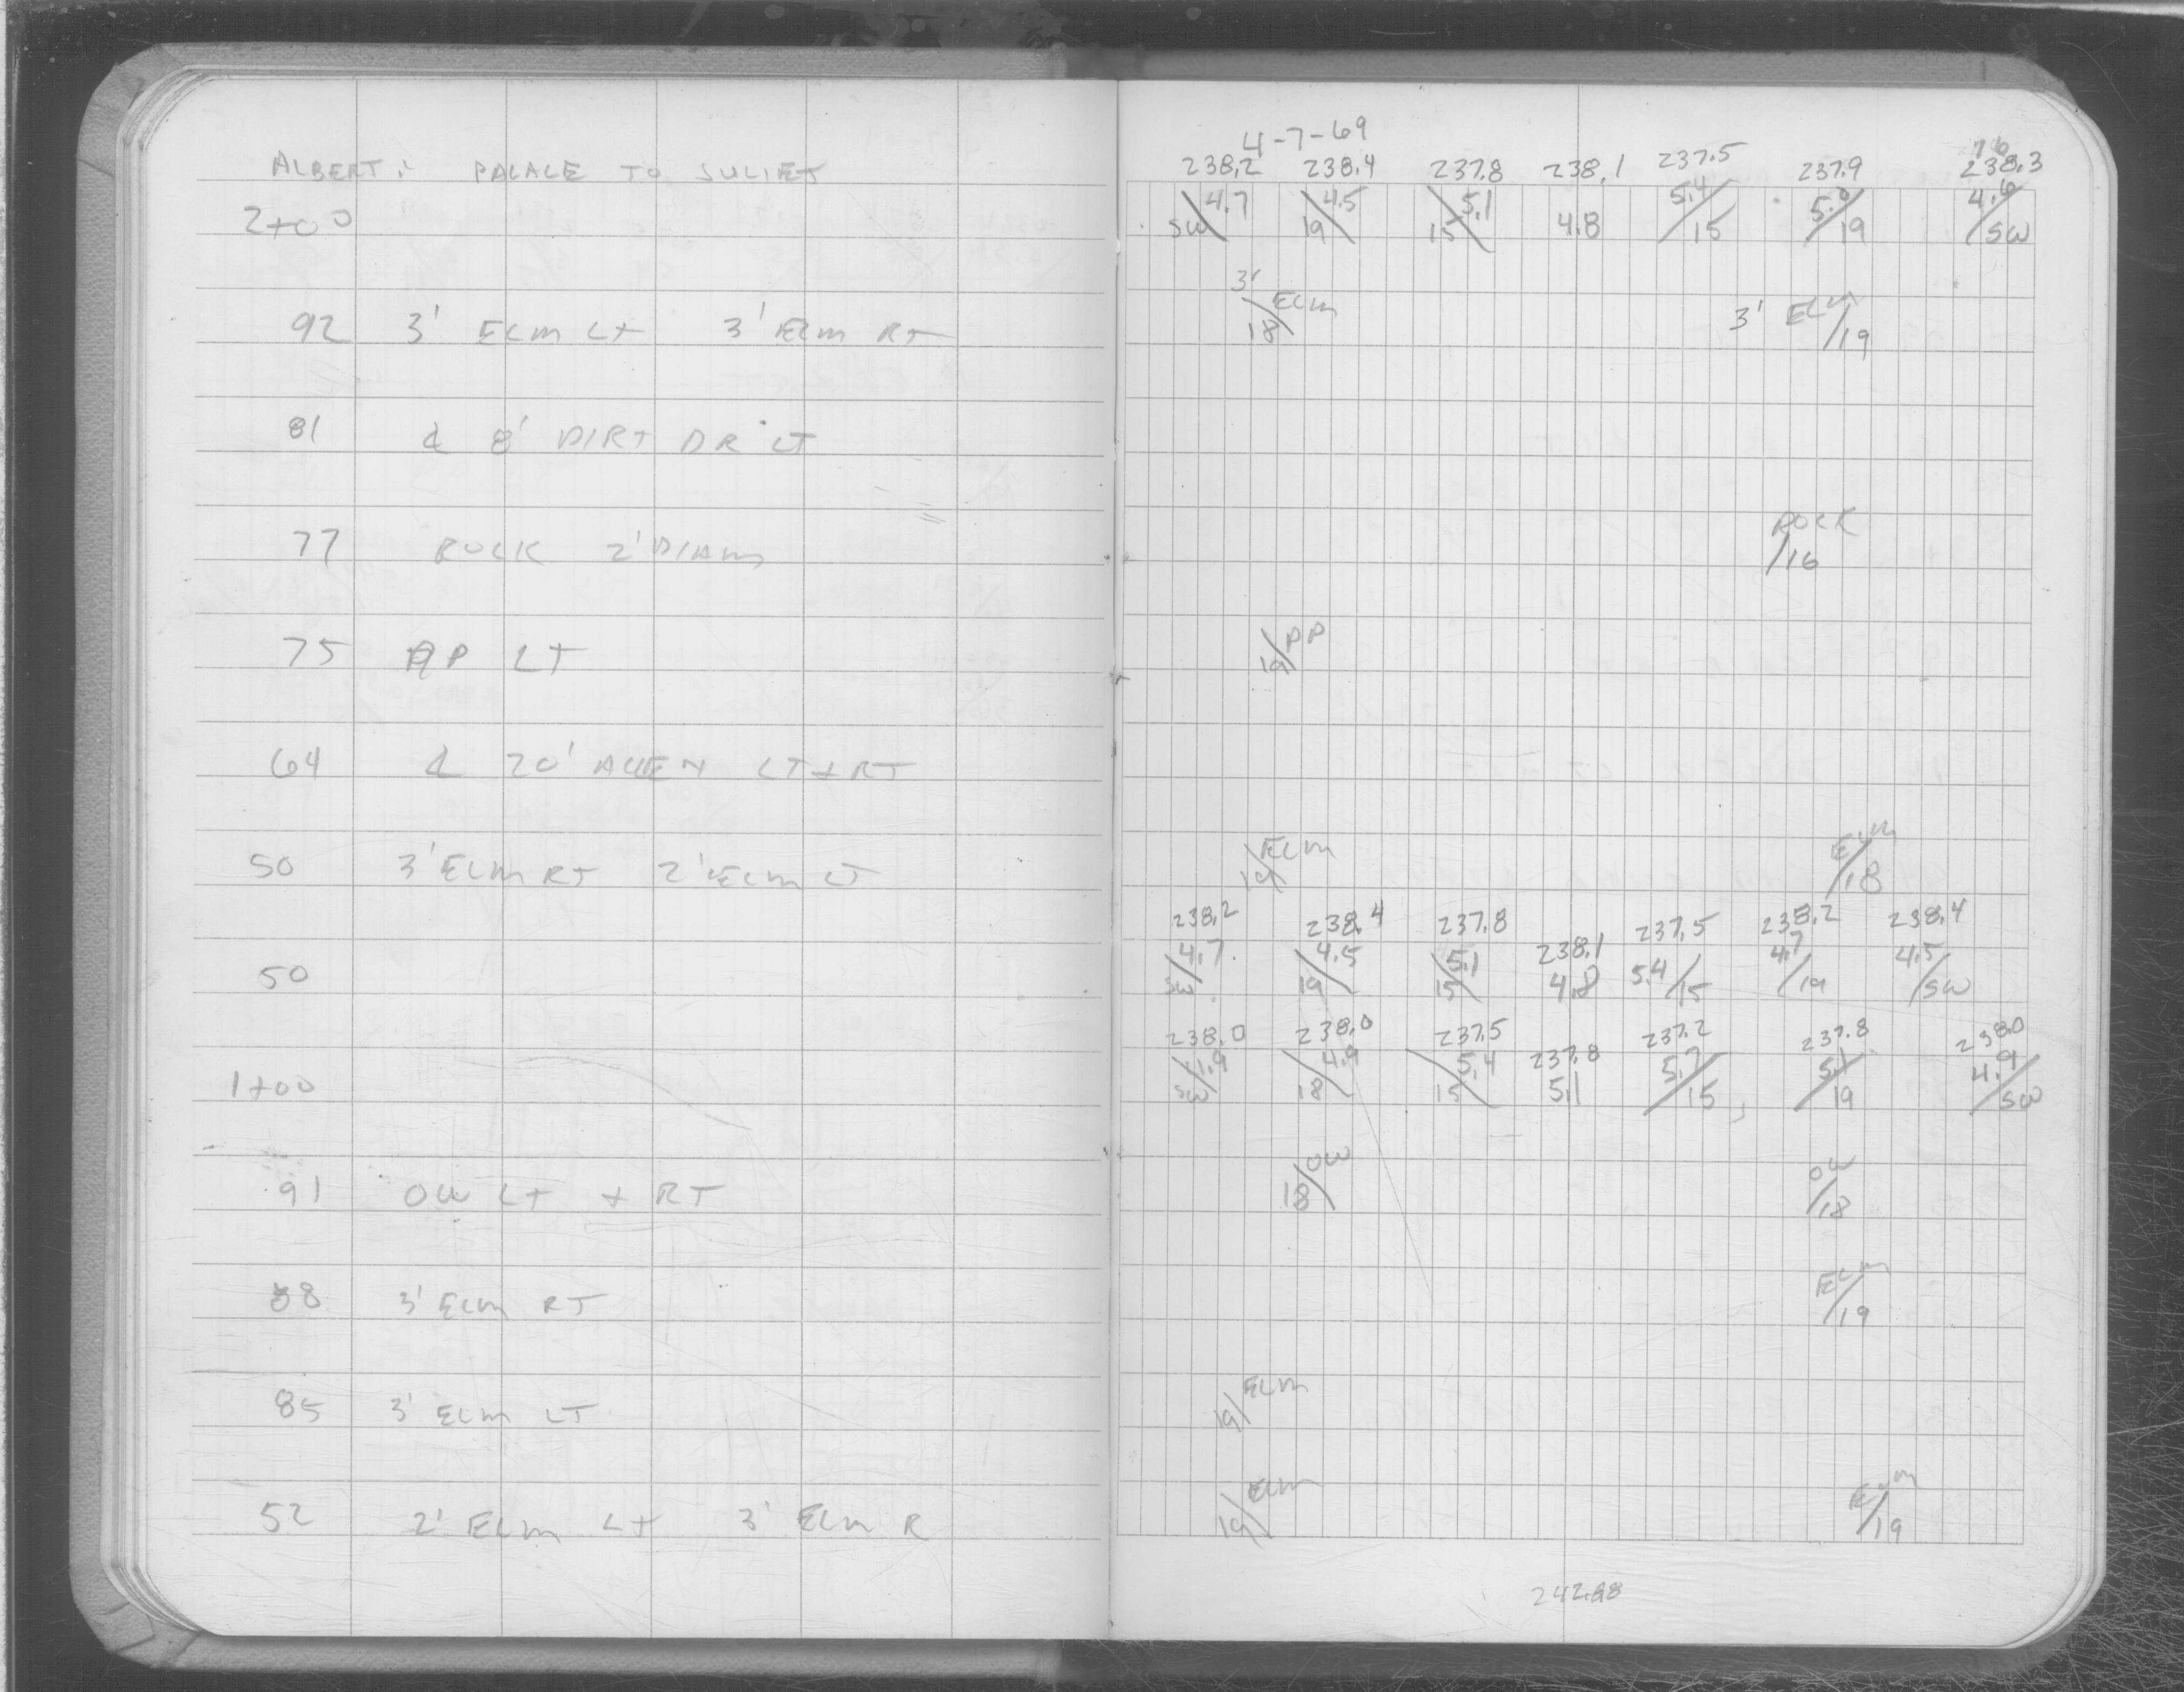 4-7-69
ALBERT: PALACE TO JULIET
238.2 238.4 237.8 238.1 237.5 237.9 238.3
2+00 4.7/SW 4.5/19 5.1/15 4.8 5.4/15 5.0/19 4.6/SW
92 3' ELM LT 3' ELM RT 3' ELM/18 3' ELM/19
81 ℄ 8' DIRT DR LT
77 ROCK 2' DIAM ROCK/16
75 PP LT 19/PP
64 ℄ 20' ALLEY LT + RT
50 3' ELM RT 2' ELM LT 19/ELM ELM/18
238.2 238.4 237.8 238.1 237.5 238.2 238.4
50 4.7/SW 4.5/19 5.1/15 4.8 5.4/15 4.7/19 4.5/SW
238.0 238.0 237.5 237.8 237.2 237.8 238.0
1+00 4.9/SW 4.9/18 5.4/15 5.1 5.7/15 5.1/19 4.9/SW
91 OW LT + RT 18/OW OW/18
88 3' ELM RT ELM/19
85 3' ELM LT 19/ELM
52 2' ELM LT 3' ELM R 19/ELM ELM/19